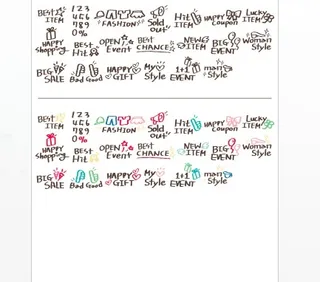 BEST ITEM 1 2 3 4 5 6 7 8 9 0 % FASHION Sold out Hit ITEM HAPPY Coupon Lucky ITEM
HAPPY shopping BEST Hit OPEN Event BEST CHANCE NEW ITEM BIG EVENT Woman Style
BIG SALE Bad Good HAPPY GIFT My Style 1+1 EVENT man Style
Best ITEM 1 2 3 4 5 6 7 8 9 0 % FASHION Sold out Hit ITEM HAPPY Coupon Lucky ITEM
HAPPY shopping BEST Hit OPEN Event BEST CHANCE NEW ITEM BIG EVENT Woman Style
BIG SALE Bad Good HAPPY GIFT My Style 1+1 EVENT man Style